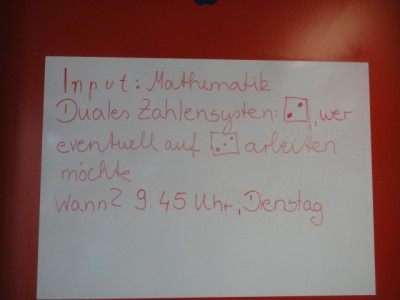 Input: Mathematik
Duales Zahlensystem: , wer
eventuell auf arbeiten
möchte
Wann? 9.45 Uhr, Dienstag